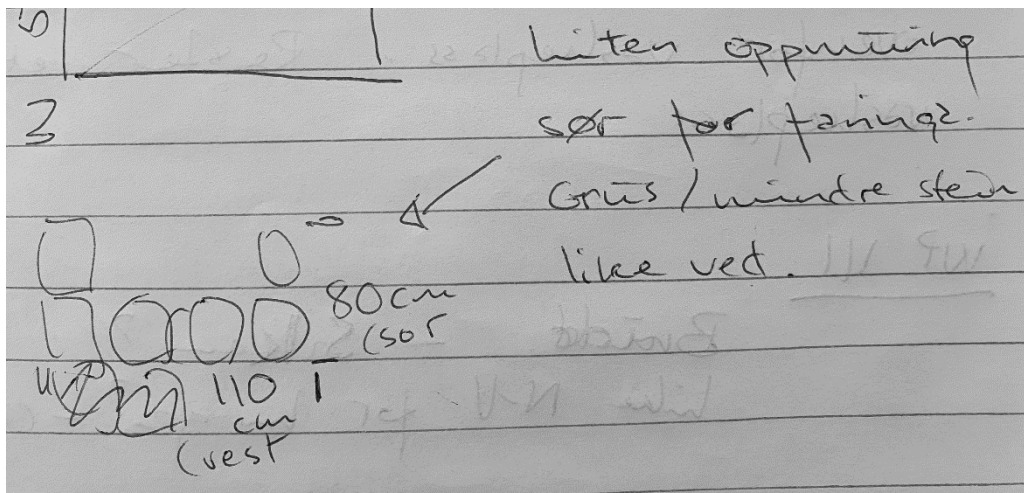 5
3
Liten oppmuring
sør for
Grus / mindre stein
like ved.
80 cm
(sør
110
cm
(vest